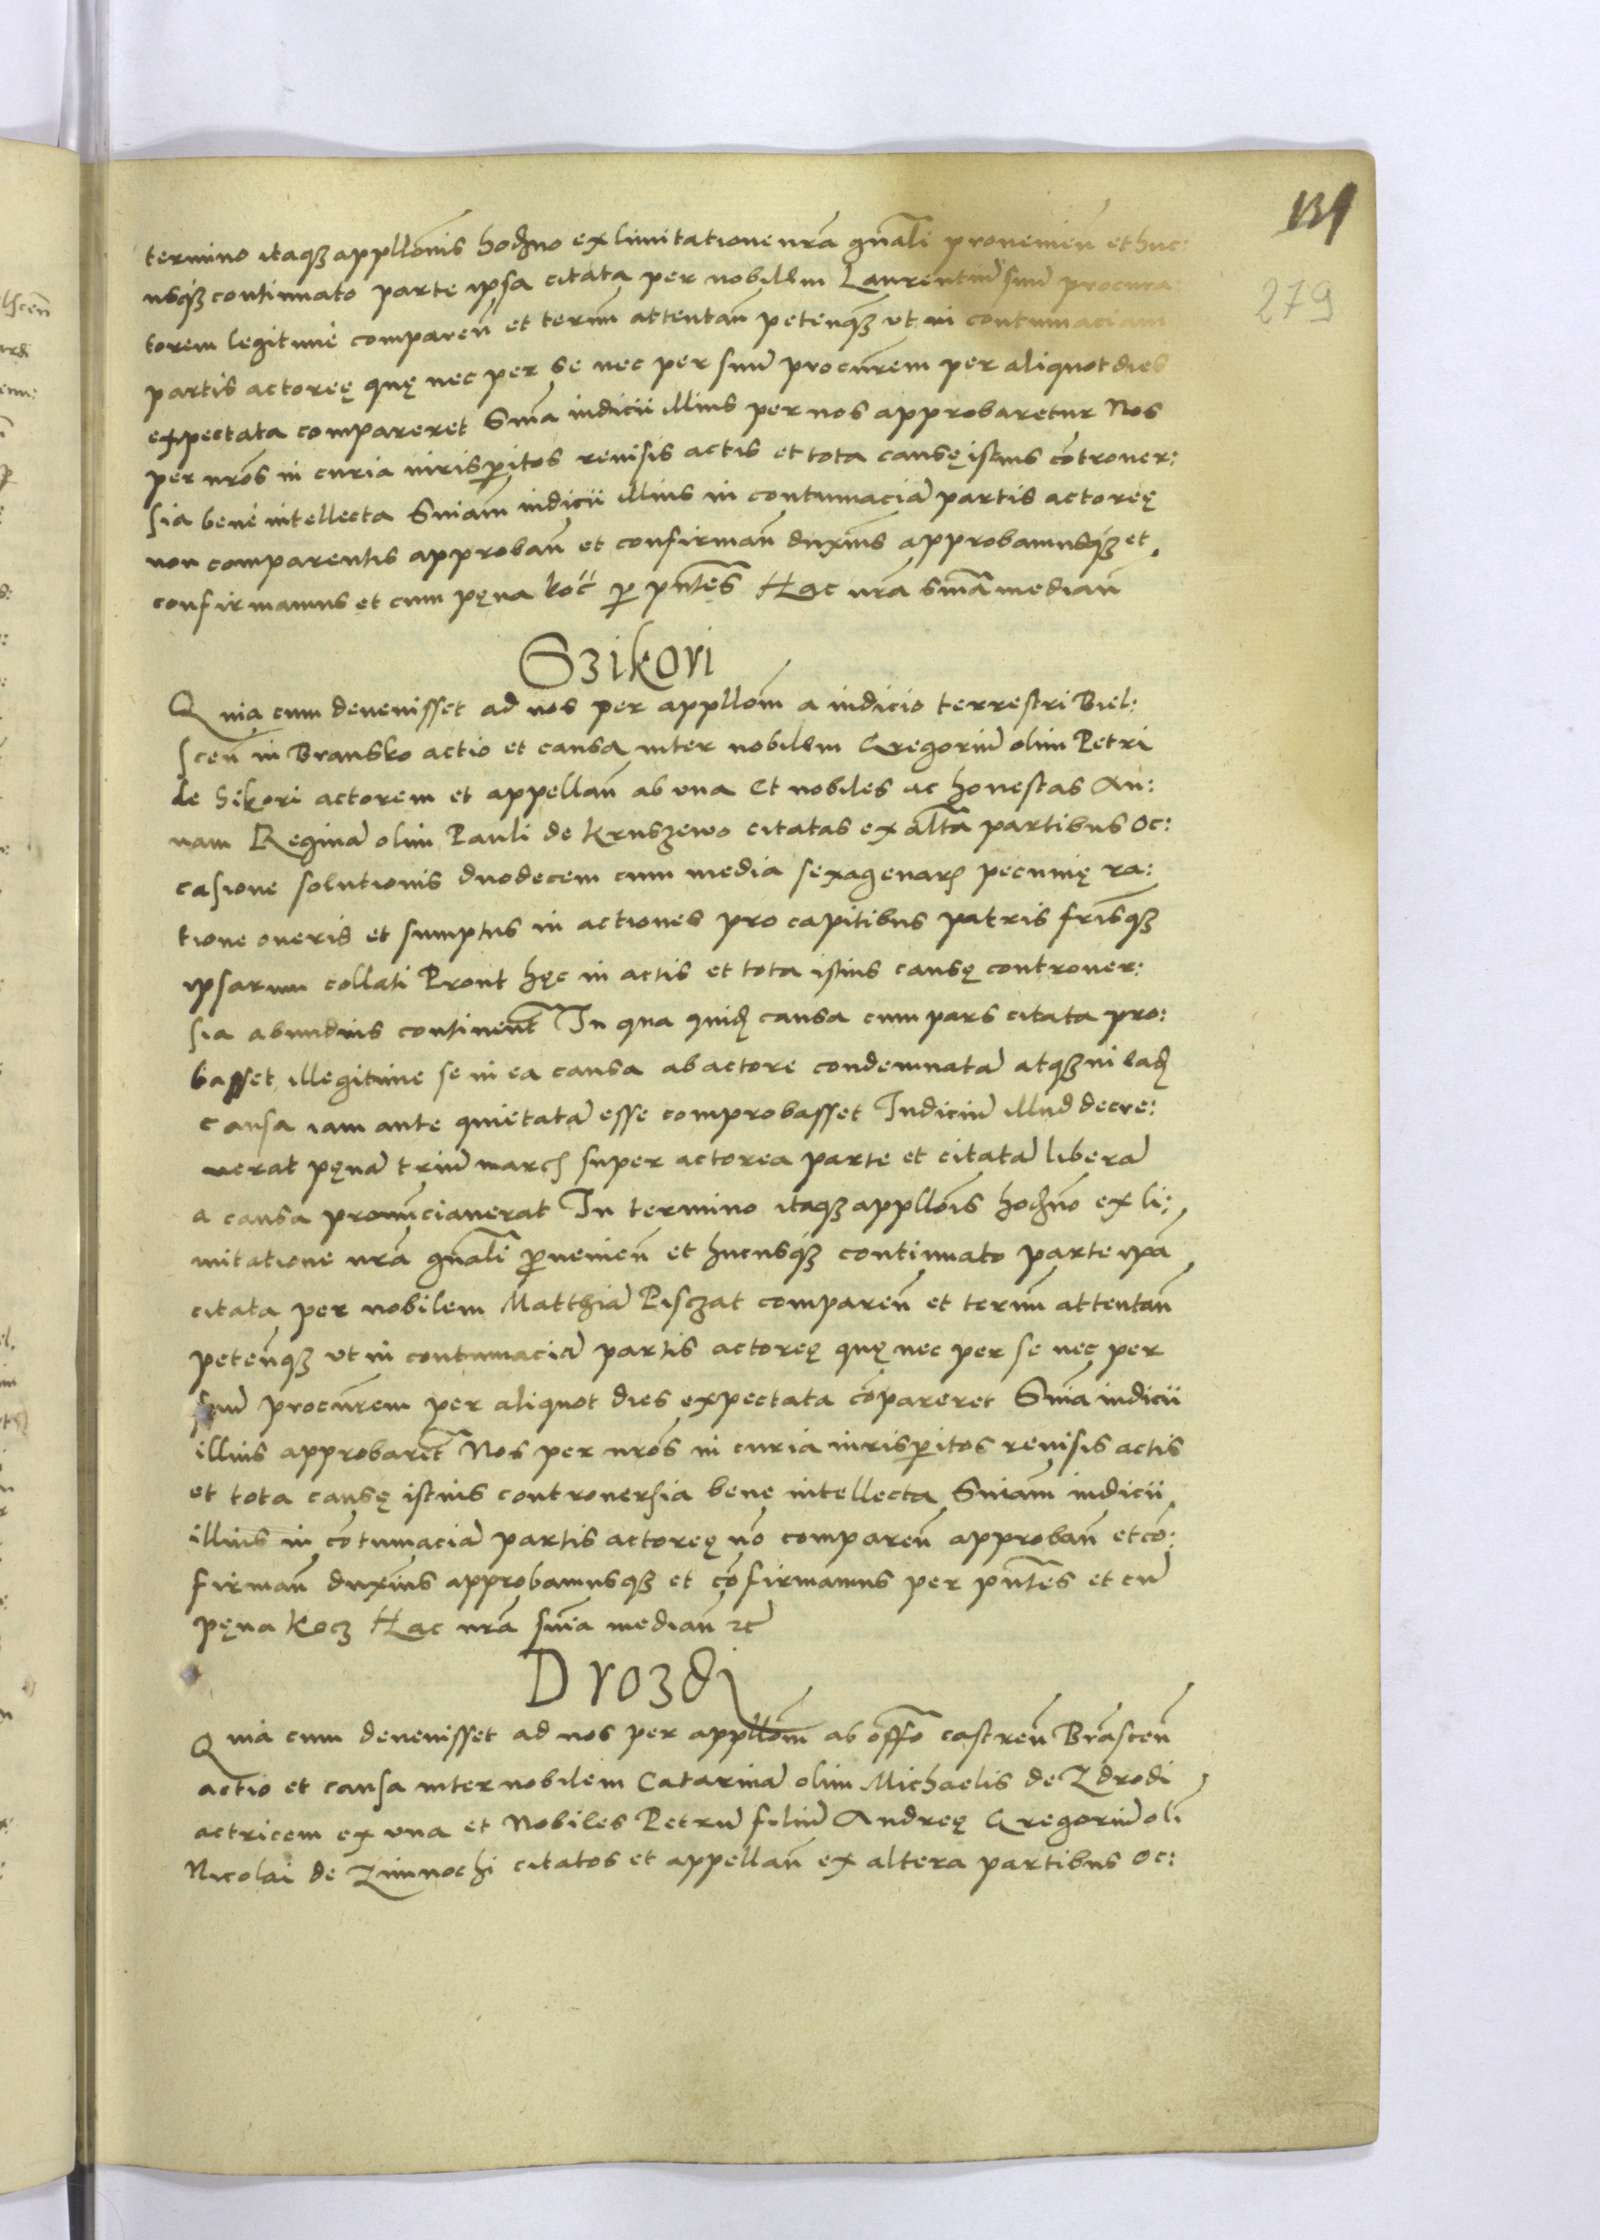 131
279
termino itaqȝ appllonis hodierno ex limitatione nrã gnãli provenien̄ et huc:
usqȝ continuato parte ipsa citata per nobilem Laurentiū suū procura:
torem legitime comparen̄ et termī attentan̄ petenqȝ ut in contumaciam
partis actoreę quę nec per se nec per suū procurem per aliquot dies
expectata compareret Snia iudicii illius per nos approbaretur Nos
per nros in curia iurisperitos revisis actis et tota causę istius cõtrover:
sia bene intellecta Sniam iudicii illius in contumaciã partis actoreę
non comparentis approban̄ et confirman̄ duximus approbamusqȝ et
confirmamus et cum pęna koć ꝑ pntes Hac nrã snia median̄
Szikori
Quia cum devenisset ad nos per appllom a iudicio terrestri Biel:
scen̄ in Bransko actio et causa inter nobilem Gregoriū olim Petri
de Sikori actorem et appellan̄ ab una Et nobiles ac honestas An:
nam Reginã olim Pauli de Kruszewo citatas ex altã partibus Oc:
casione solutionis duodecem cum media sexagenarꝫ pecunię ra:
tione oneris et sumptus in actiones pro capitibus patris frisqȝ
ipsarum collati Prout hęc in actis et tota istius causę controver:
sia abundius continent̃ In qua quidꝫ causa cum pars citata pro:
basset illegitime se in ea causa ab actore condemnatã atqȝ in eadꝫ
causa iam ante quietatã esse comprobasset Iudiciū illud decre:
verat pęnã triū marcꝫ super actorea parte et citatã liberã
a causa pronūcianerat In termino itaqȝ appllonis hodierno ex li:
mitatione nrã gnãli ꝓvenien̄ et hucusqȝ continuato parte ipã
citata per nobilem Matthiã Pisczat comparen̄ et termī attentan̄
petenqȝ ut in contumaciã partis actoreę quę nec per se nec per
suū procurem per aliquot dies expectata cõpareret Snia iudicii
illius approbaret̃ Nos per nros in curia iurisperitos revisis actis
et tota causę istius controversia bene intellecta Sniam iudicii
illius in cõtumaciã partis actoreę nõ comparen̄ approban̄ et cõ:
firman̄ duximus approbamusqȝ et cõfirmamus per pntes et cū
pęna Kocz Hac nrã snia median̄ ⁊c
Drozdi
Quia cum devenisset ad nos per appllom ab offo castren̄ Brãscen̄
actio et causa inter nobilem Catarinã olim Michaelis de Zdrodi
actricem ex una et Nobiles Petrū filiū Andreę Gregoriū oli
Nicolai de Zimnochi citatos et appellan̄ ex altera partibus Oc: